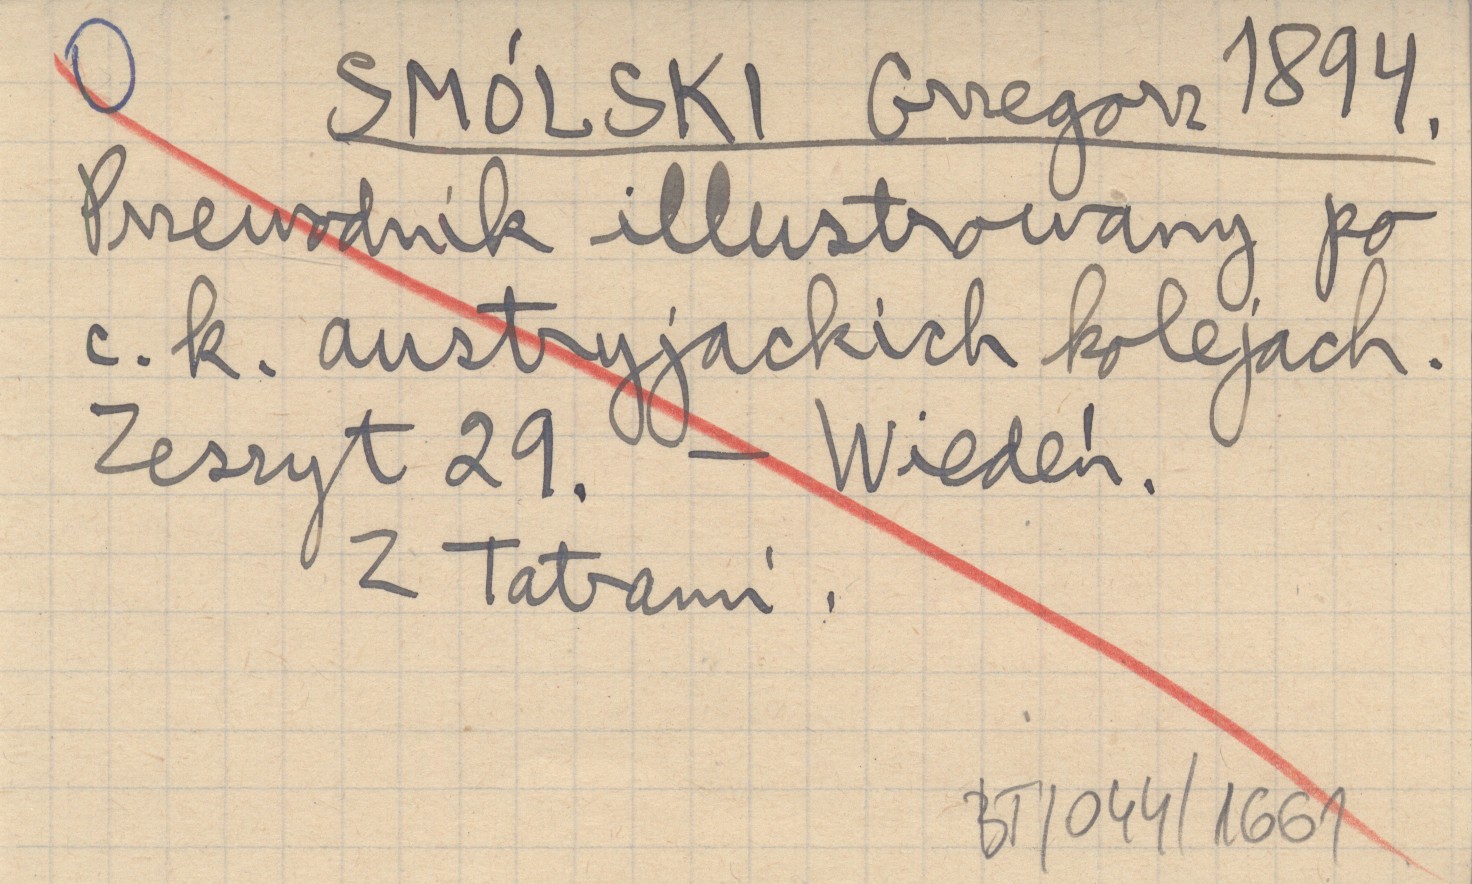 SMÓLSKI Grzegorz 1894.
Przewodnik illustrowany po
c. k. austryjackich kolejach.
Zeszyt 29. — Wiedeń.
Z Tatrami.
BT/044/1661